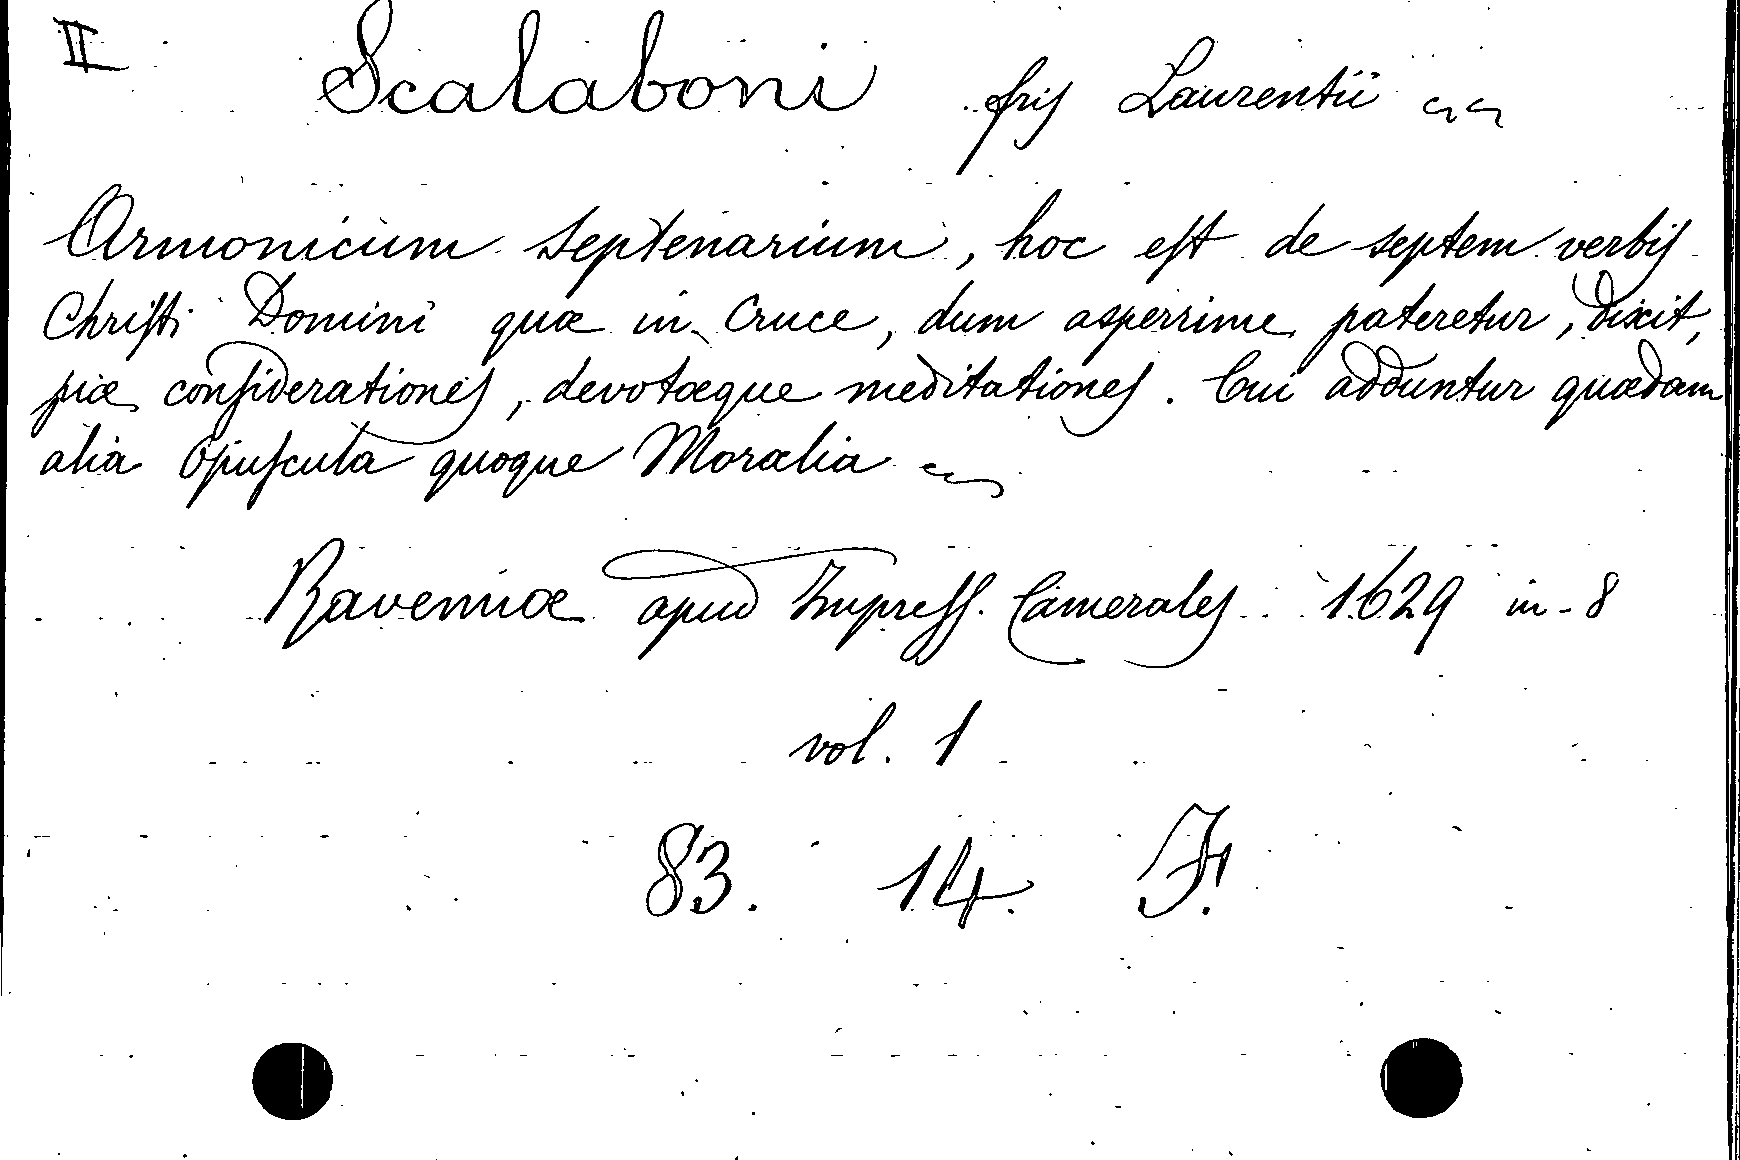 II Scalaboni fris Laurentii
Armonicum septenarium, hoc est de septem verbis
Christi Domini quæ in Cruce, dum asperrime pateretur, dixit,
piæ considerationes, devotæque meditationes. Cui adduntur quædam
alia Opuscula quoque Moralia
Ravennæ apud Impress. Camerales 1629 in-8
vol. 1
83. 14. F.